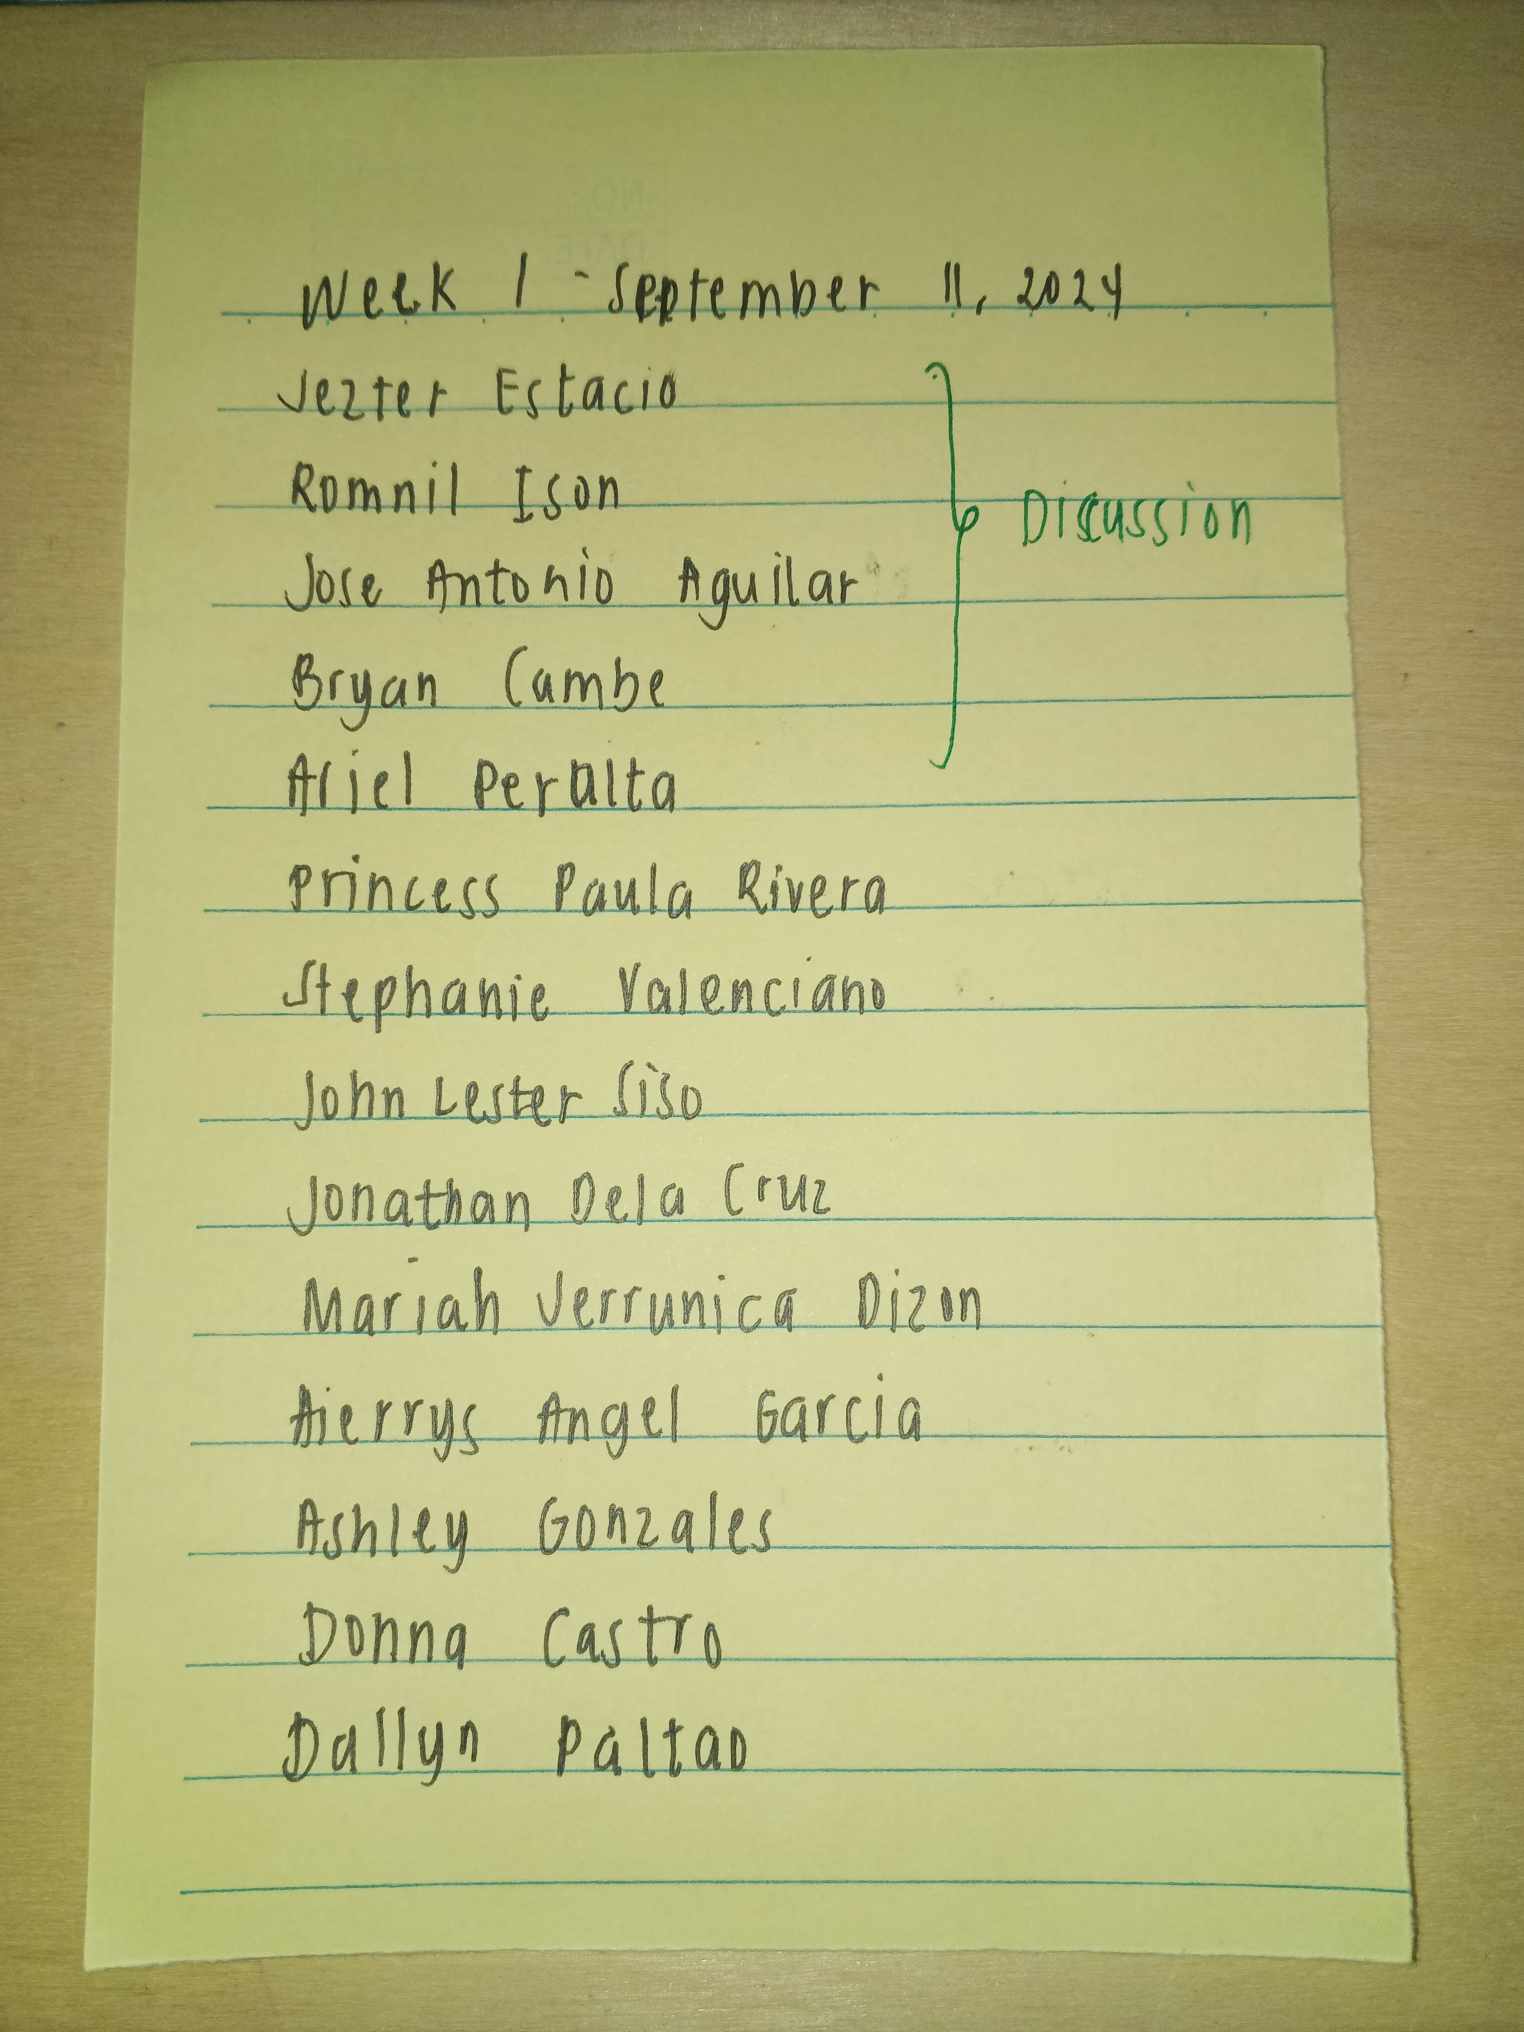 Week 1 - September 11, 2024
Jezter Estacio
Romnil Ison
Discussion
Jose Antonio Aguilar
Bryan Cambe
Ariel Peralta
Princess Paula Rivera
Stephanie Valenciano
John Lester Siso
Jonathan Dela Cruz
Mariah Verrunica Dizon
Aierrys Angel Garcia
Ashley Gonzales
Donna Castro
Dallyn Paltao